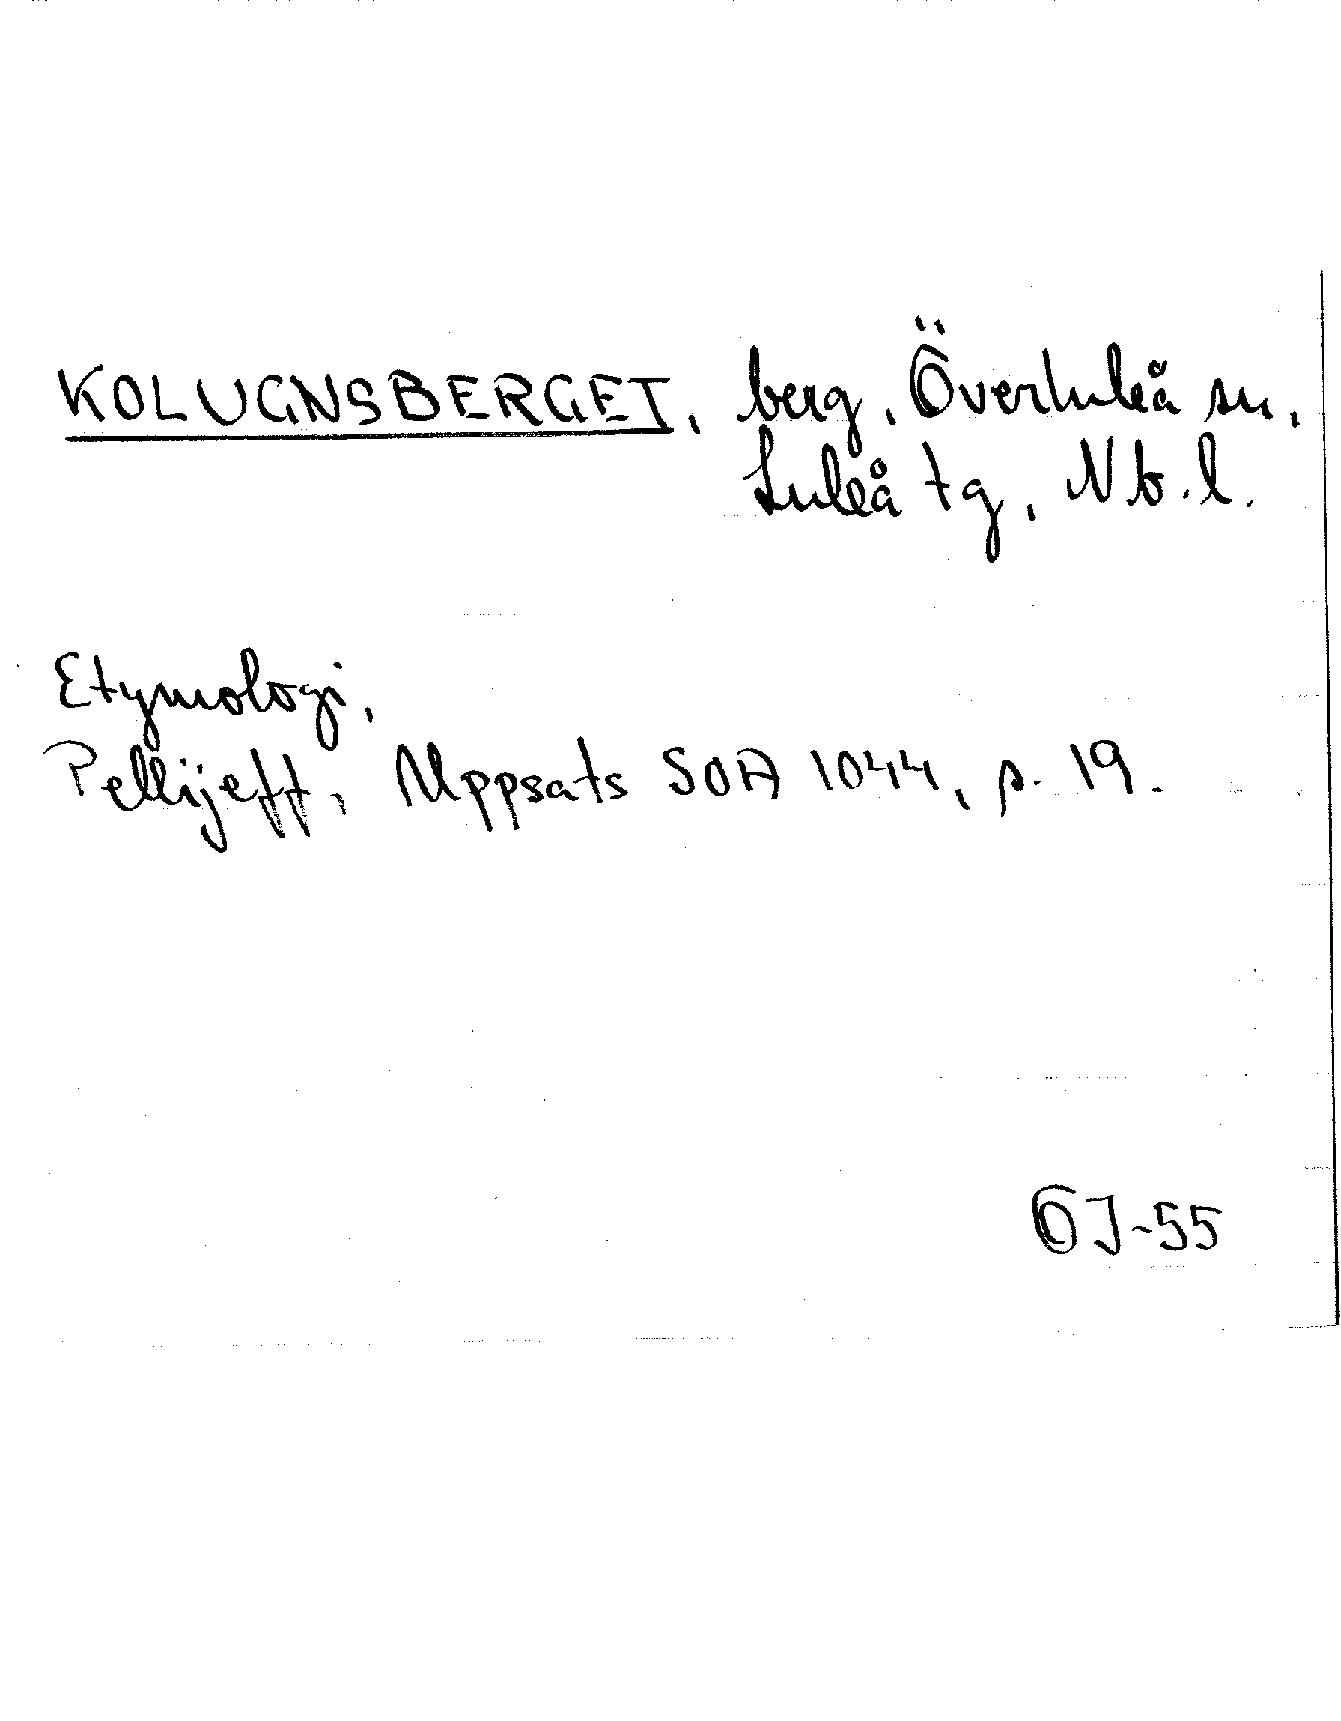 KOLUGNSBERGET, berg, Överluleå sn,
Luleå tg, Nb.l.
Etymologi,
Pellijeff, Uppsats SOA 1044, s. 19.
ÖJ-55